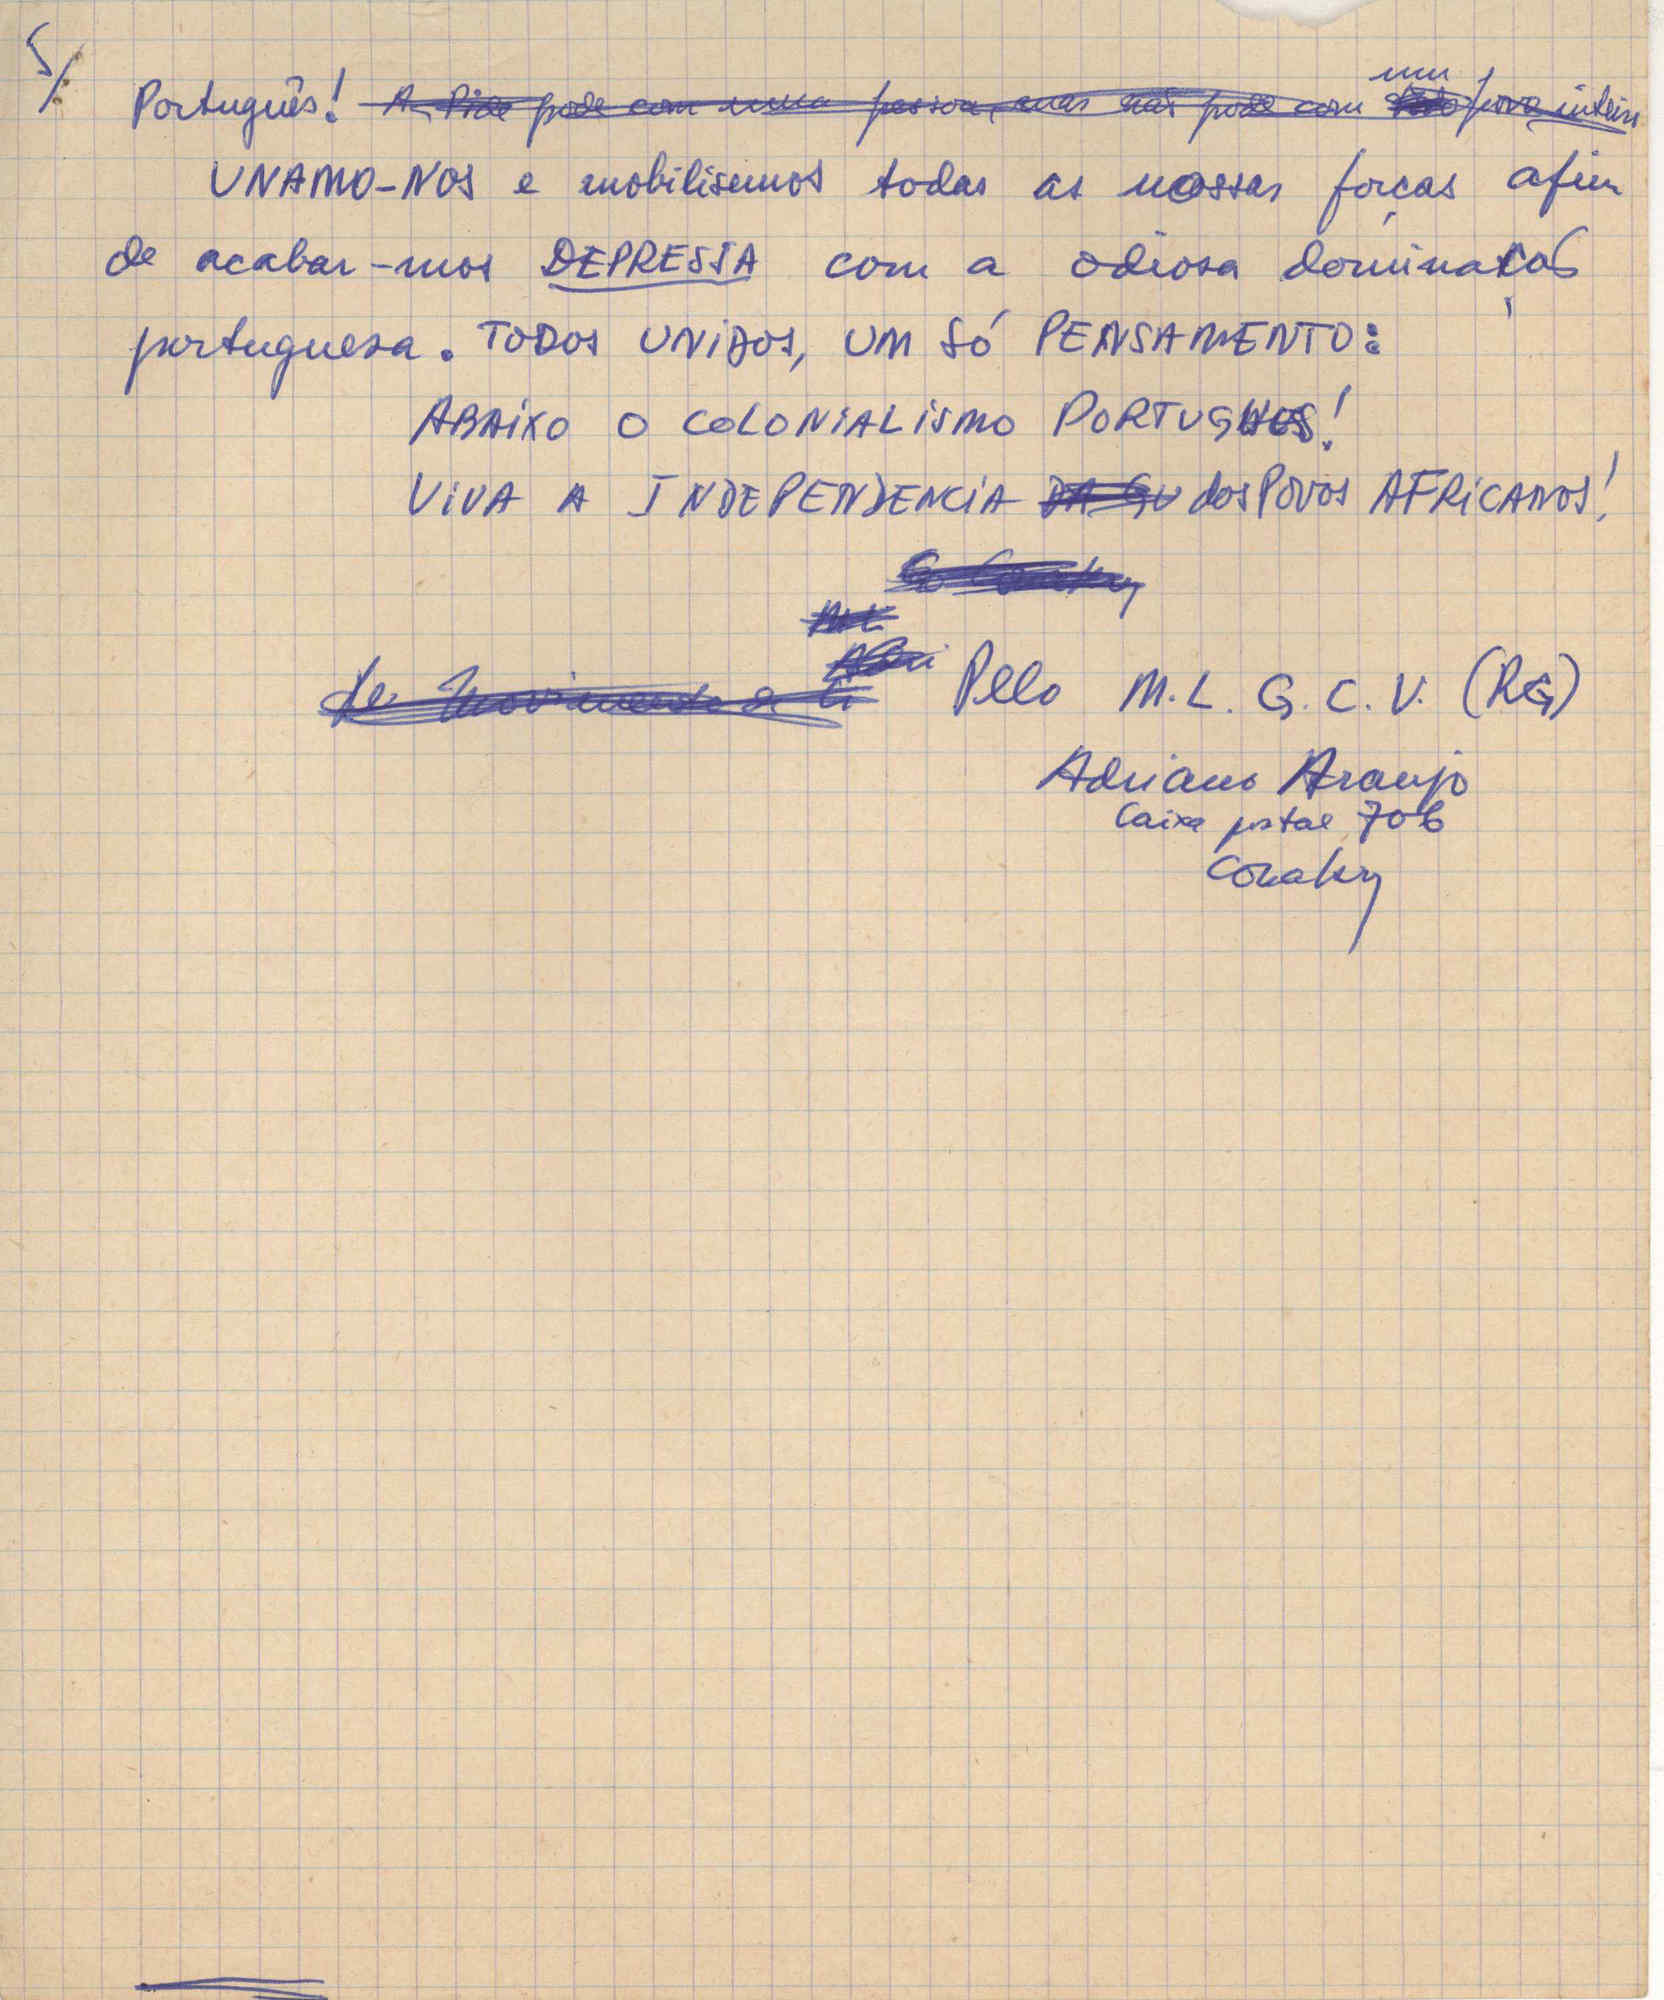 5/
Português! A Pide pode com uma pessoa, mas não pode com um povo inteiro
UNAMO-NOS e mobilisemos todas as nossas forças afim
de acabar-mos DEPRESSA com a odiosa dominação
portuguesa. TODOS UNIDOS, UM SÓ PENSAMENTO:
ABAIXO O COLONIALISMO PORTUGUES!
VIVA A INDEPENDENCIA DA GU dos POVOS AFRICANOS!
Conakry
ML
de Movimento de Li Pelo M.L.G.C.V. (RG)
Adriano Araujo
Caixa postal 706
Conakry